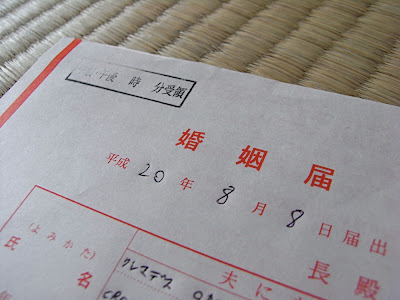 午後 時 分受領
婚姻届
平成 20 年 8 月 8 日届出
長殿
夫に
(よみかた)
氏名
クレスデス